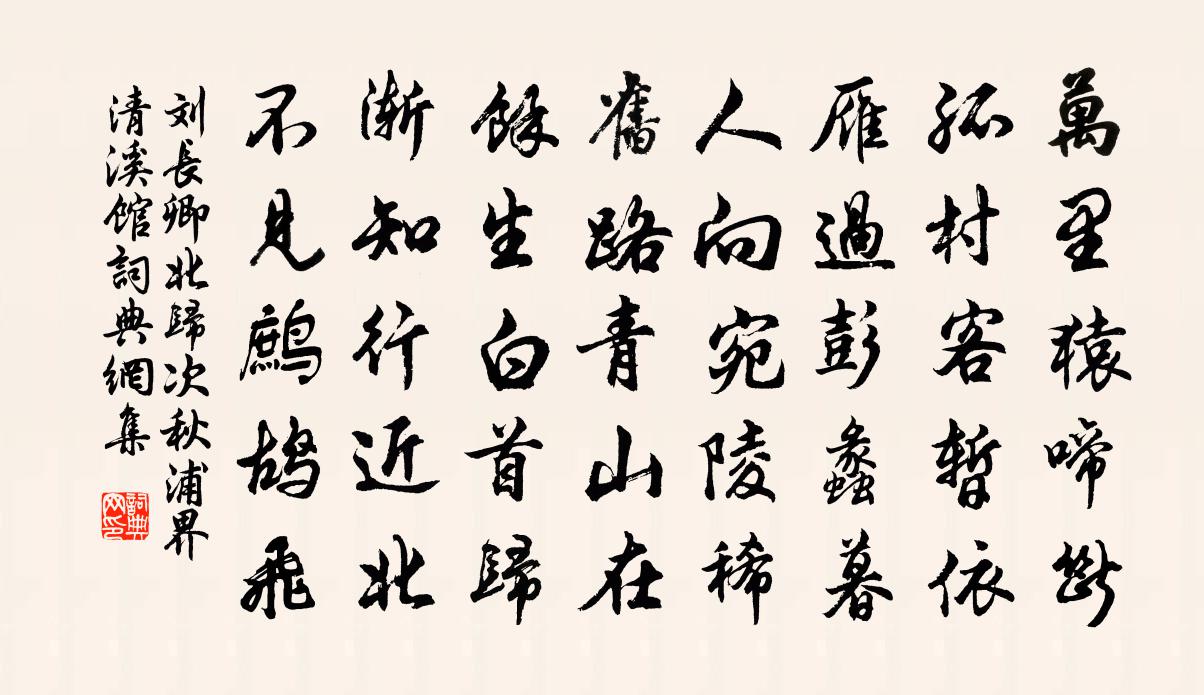 萬里猿啼斷
孤村客暫依
雁過彭蠡暮
人向宛陵稀
舊路青山在
餘生白首歸
漸知行近北
不見鷓鴣飛
刘長卿北歸次秋浦界
清溪館詞典網集
詞典
网印